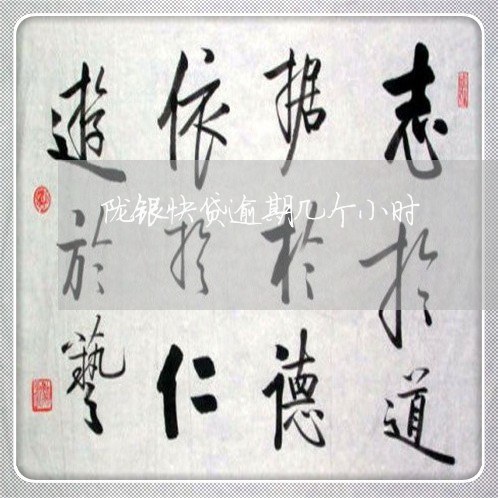 志於道
据於德
依於仁
遊於藝
陇银快贷逾期几个小时